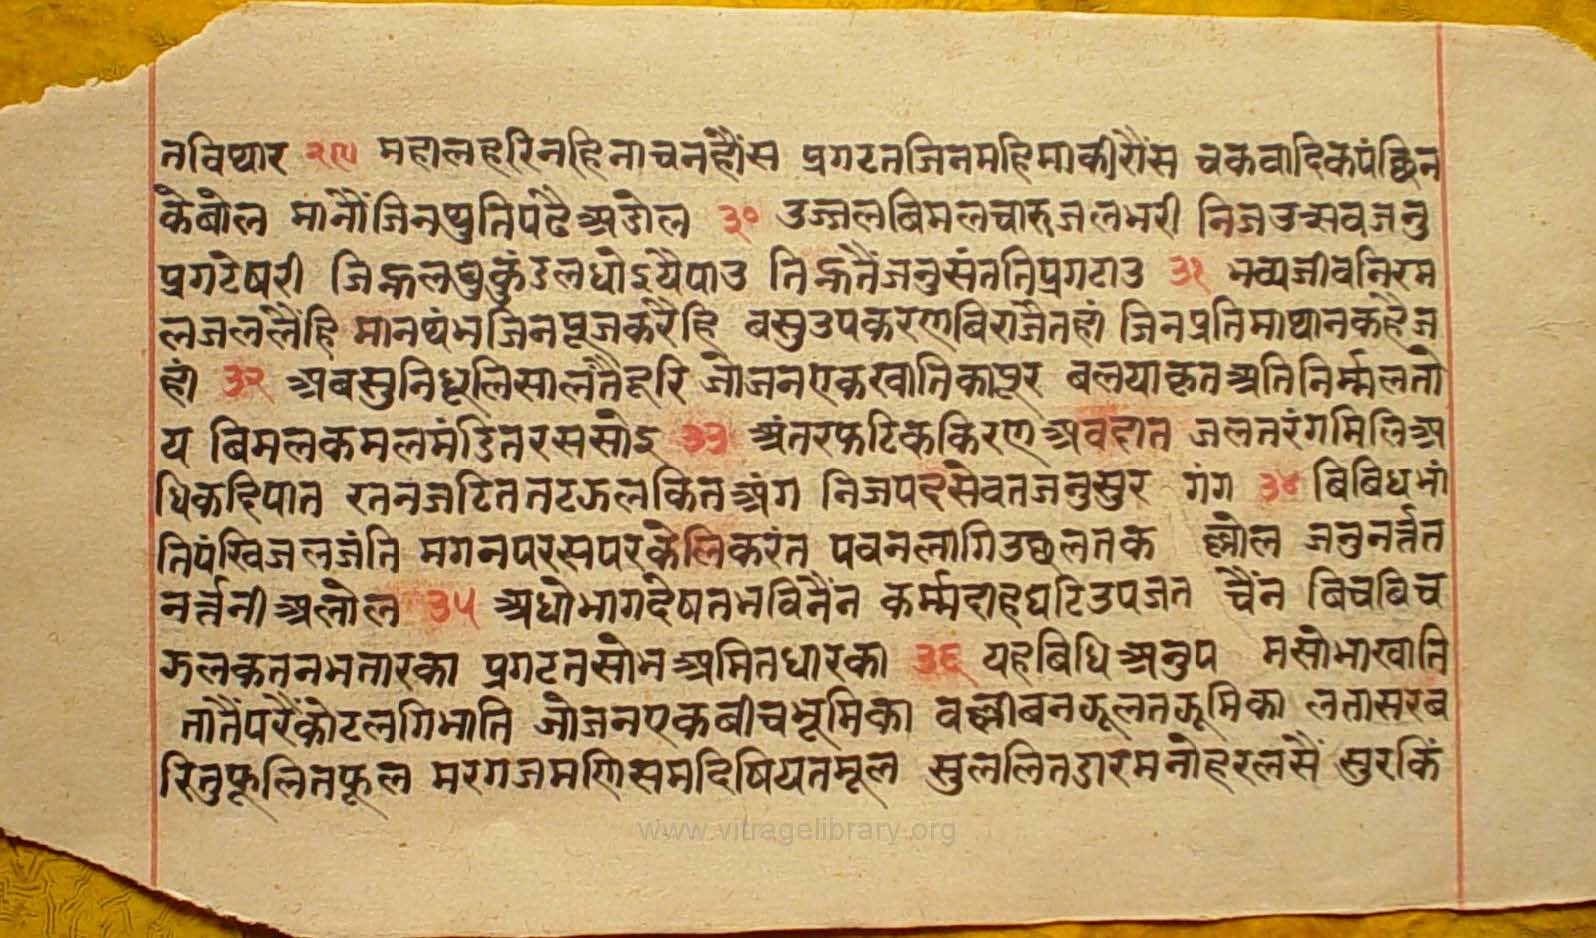 तविथार २९ महालहरिनहिनाचनहौंस प्रगटतजिनमहिमाकीरौंस चकवादिकपंछिन
केबोल मानौंजिनथुतिपढैअडोल ३० उज्जलबिमलचारुजलभरी निजउत्सवजनु
प्रगटेषरी जिह्नलघुकुंडलधोऽयैपाउ तिह्नतैंजनुसंततिप्रगटाउ ३१ भव्यजीवनिरम
लजललैंहि मानथंभजिनपूजकरैहि वसुउपकरणबिराजैतहां जिनप्रतिमाथानकहैज
हां ३२ अबसुनिधूलिसालतैदूरि जोजनएकखातिकापूर बलयाकृतअतिनिर्म्मलतो
य बिमलकमलमंडितरससोऽ ३३ अंतरफटिककिरणअवदात जलतरंगमिलिअ
धिकहिपात रतनजटिततटझलकितअंग निजपदसेवतजनुसुर गंग ३४ बिबिधभां
तिपंखिजलजंति मगनपरसपरकेलिकरंत पवनलागिउछलतक ल्लोल जनुनर्त्तत
नर्त्तनीअलोल ३५ अधोभागदेषतभविनैंन कर्म्मदाहघटिउपजत चैंन बिचबिच
झलकतनभतारका प्रगटतसोभअमितधारका ३६ यहबिधिअनुप मसोभाखाति
तातैंपरैंकोटलगिभाति जोजनएकबीचभूमिका वल्लीबनझूलतझूमिका लतासरब
रितुफूलितफूल मरगजमणिसमदिषियतमूल सुललितडारमनोहरलसैं सुरकिं
www.vitragelibrary.org